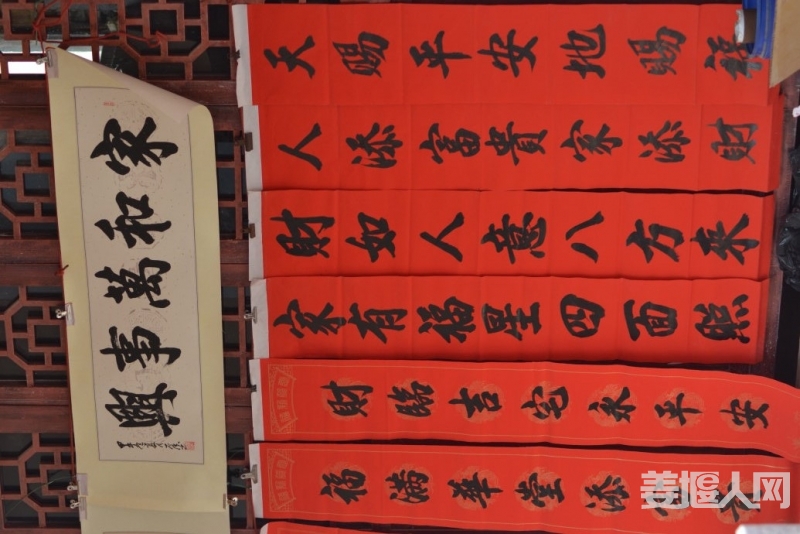 家和萬事興
天賜平安地賜福
人添富貴家添財
財如人意八方来
家有福星四面照
財臨吉宅永平安
福滿華堂添
姜堰人网